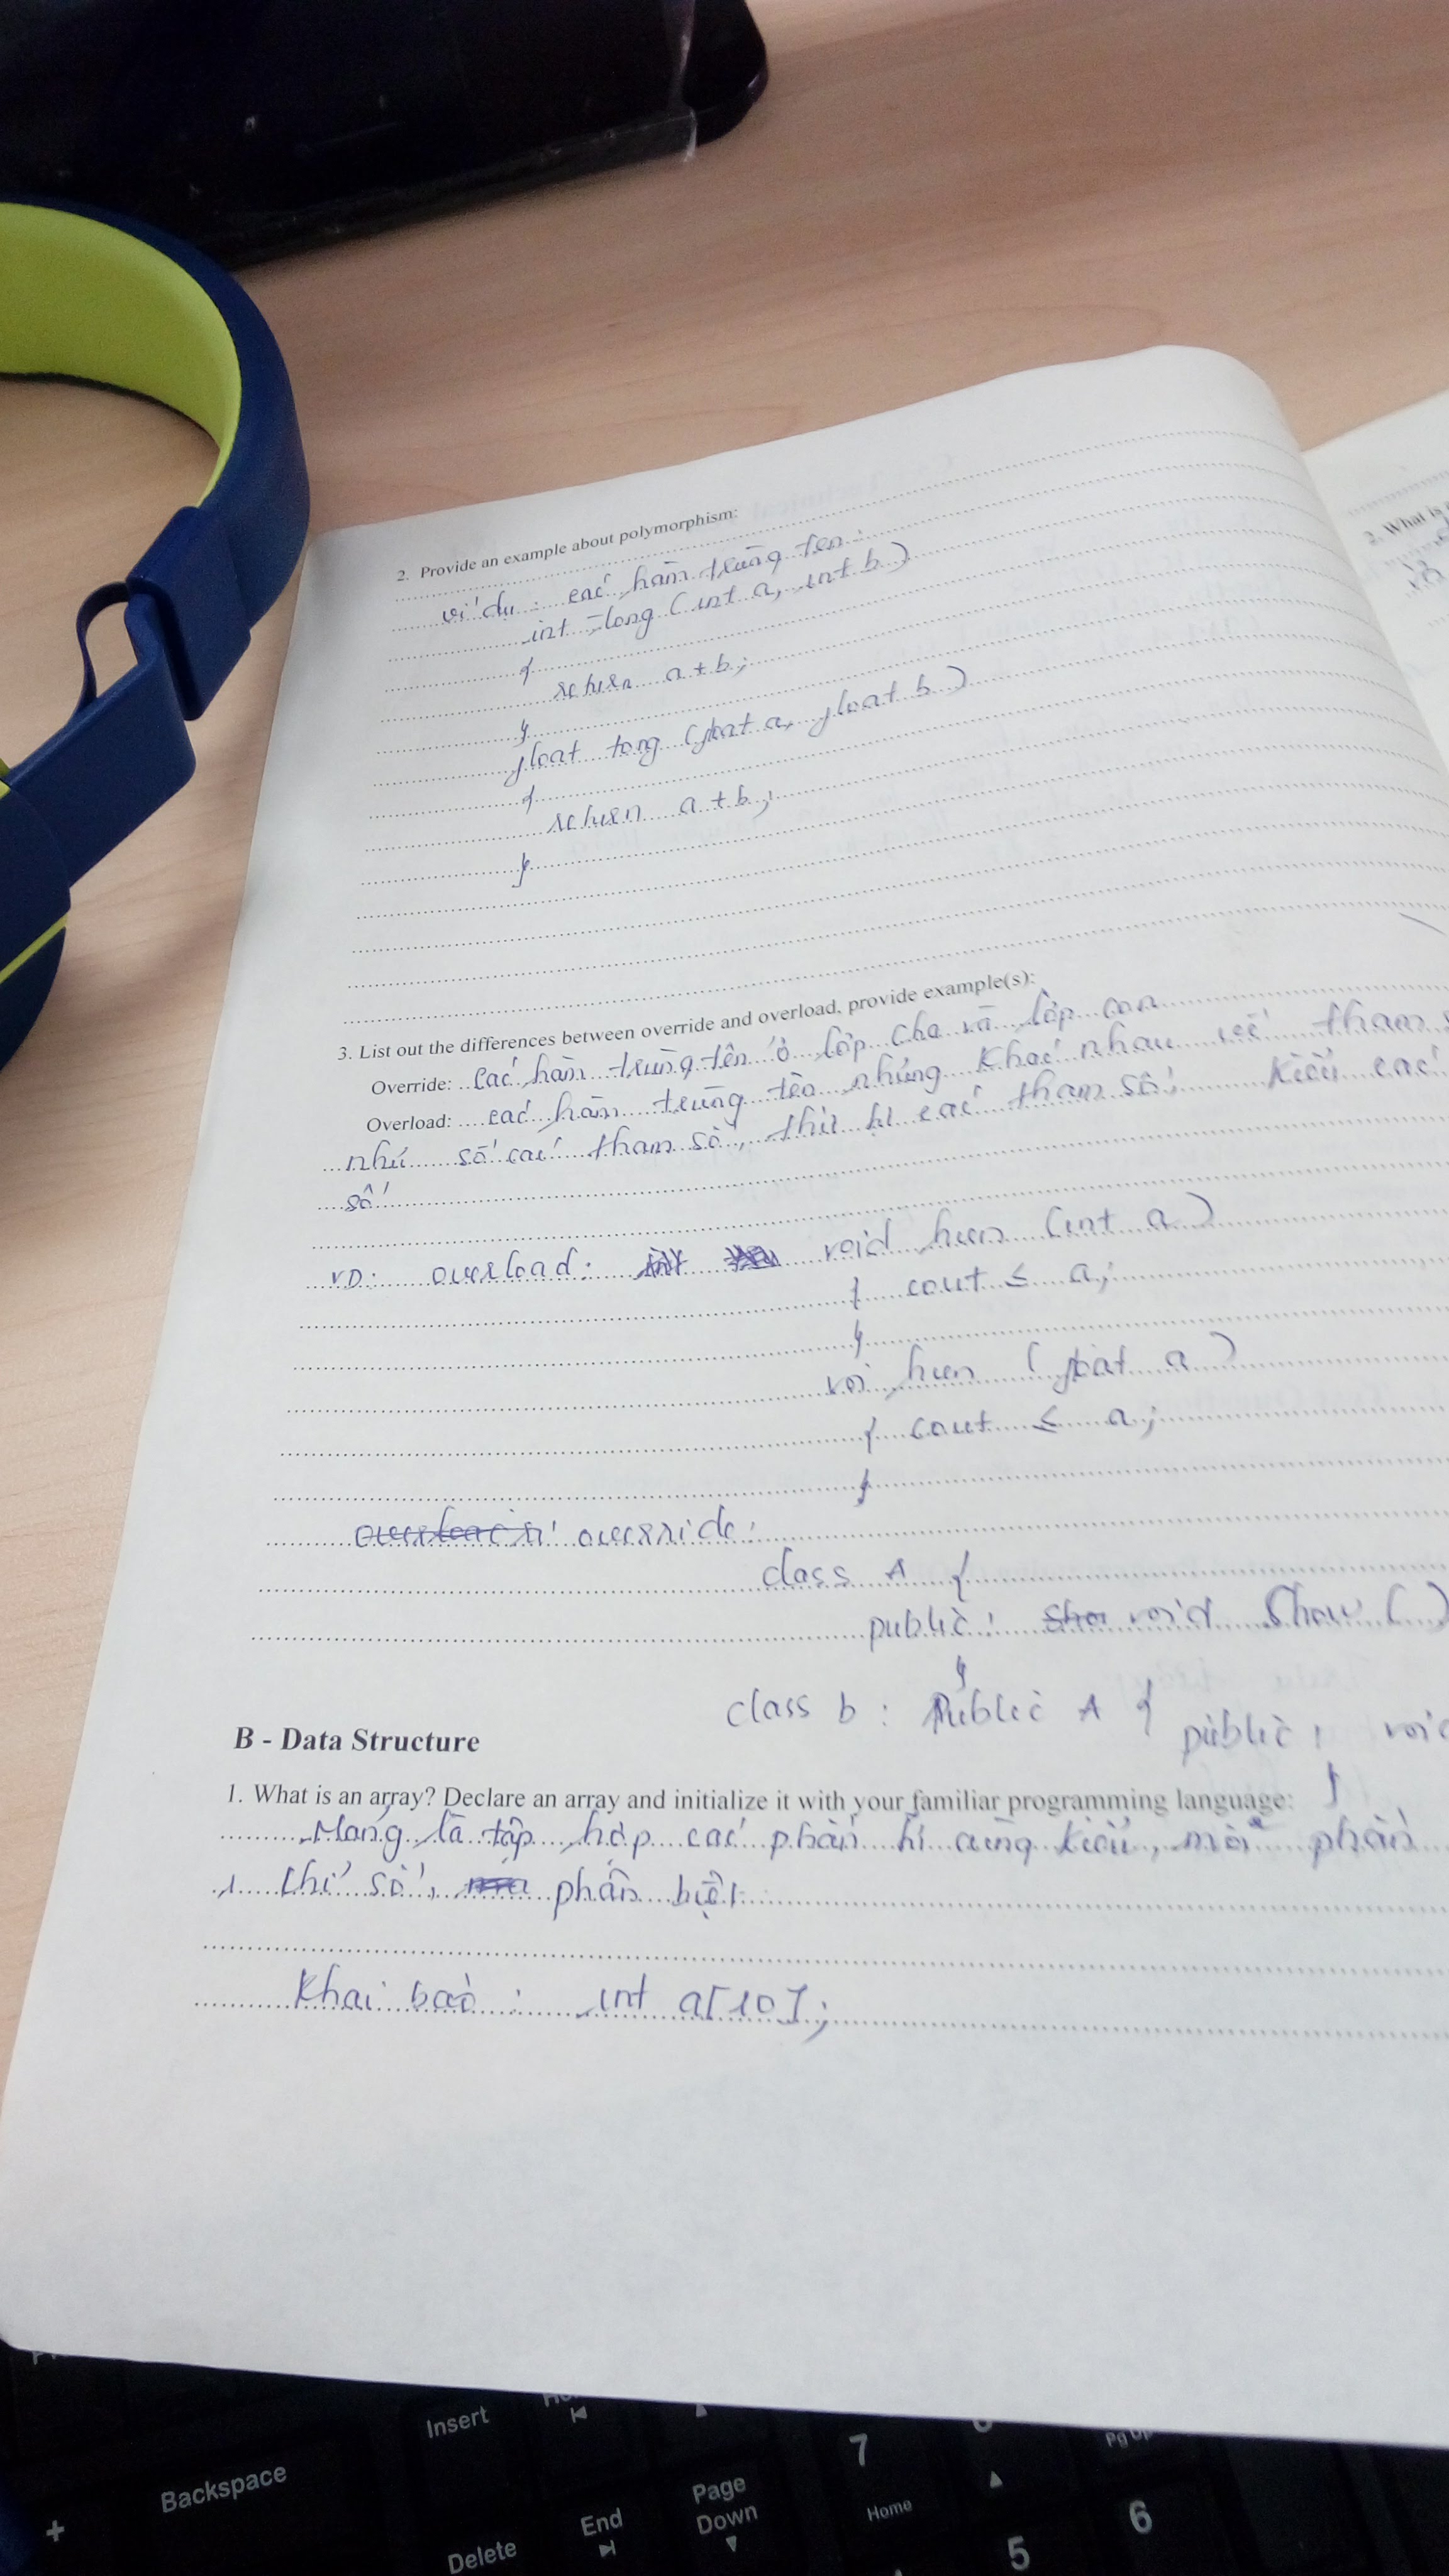 2. Provide an example about polymorphism:
ví dụ: các hàm trùng tên:
int tong (int a, int b)
{
return a+b;
}
float tong (float a, float b)
{
return a+b;
}
3. List out the differences between override and overload, provide example(s):
Override: các hàm trùng tên ở lớp cha và lớp con
Overload: các hàm trùng tên nhưng khác nhau về tham
như số các tham số, thứ tự các tham số, kiểu các
số
VD: overload: void hun (int a)
{ cout ≤ a;
}
voi hun (float a)
{ cout ≤ a;
}
override:
class A {
public: void Show ( )
}
class b : Public A {
public:
}
B - Data Structure
1. What is an array? Declare an array and initialize it with your familiar programming language:
Mảng là tập hợp các phần tử cùng kiểu, mỗi phần
1 chỉ số, phân biệt
Khai báo: int a[10];
2. What is
Insert
Backspace
Delete
End
Page
Down
7
Home
5
6
Pg Up
+